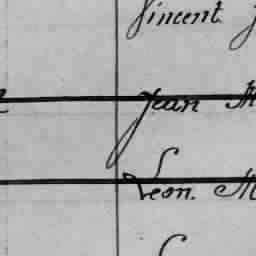 Vincent
Jean M
Leon. M